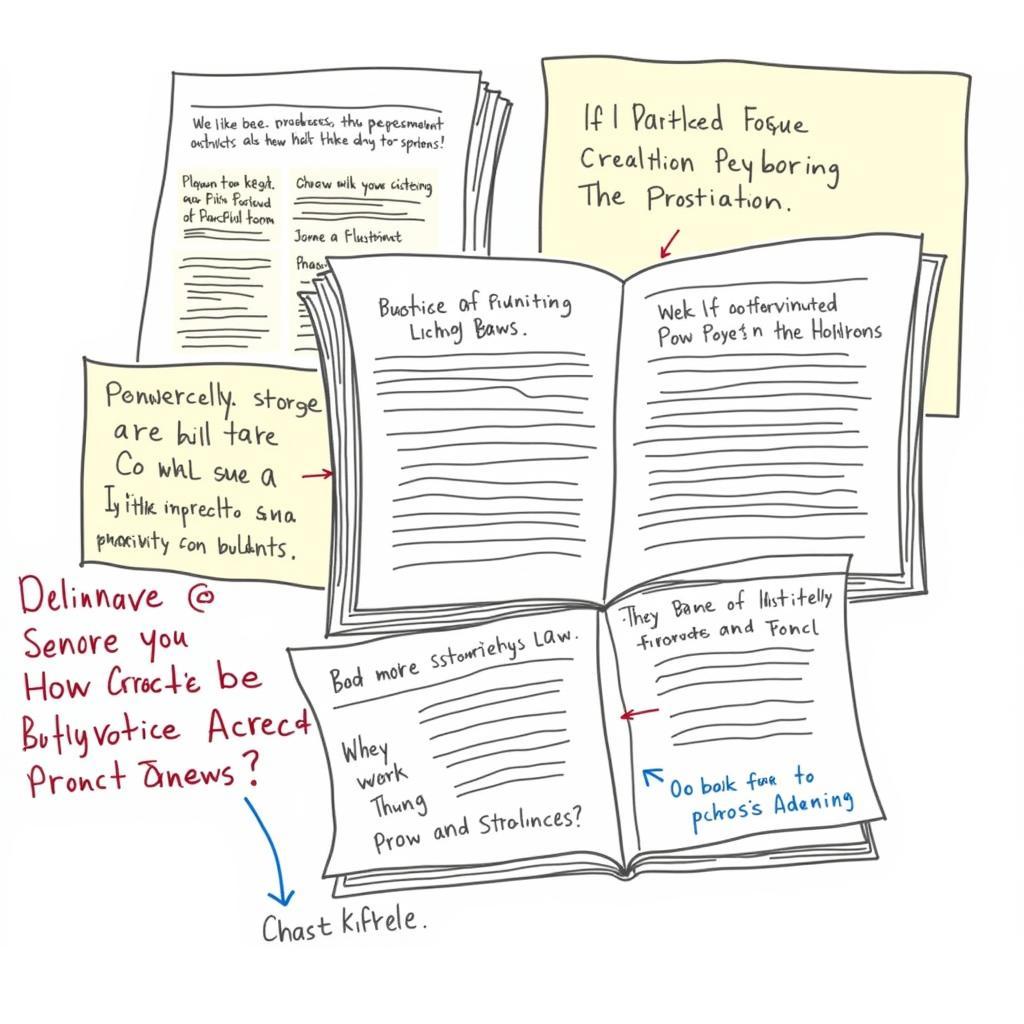 We like bee. prodresses, thu pepesmount
Playun too kegh.
aux Pith Forlud
of Parcful toom
Chuow with yowe cisteing
Jorne a Flustimut
Phase
If I Partlced Fogue
Crealtion Peyboring
The Prostiation.
Buotice of Piuniting
Liching Baws.
Wek If ootfervinuted
Pow Poyetn the Holnrons
Ponwercelly. storge
are bill tare
Co whL sue a
Iyithk inprecto sna
phocivity con buldnts.
Delinnave @
Senore you
How Crocte be
Botlyvotice Acrect
Pronct Tnews?
Bod more sstouriehys Law.
Whey
work
Thung
Prow and Stralinces?
They Bane of
and Foncl
Oo bolk fuse to
pchos's Adening
Chast Kifrele.